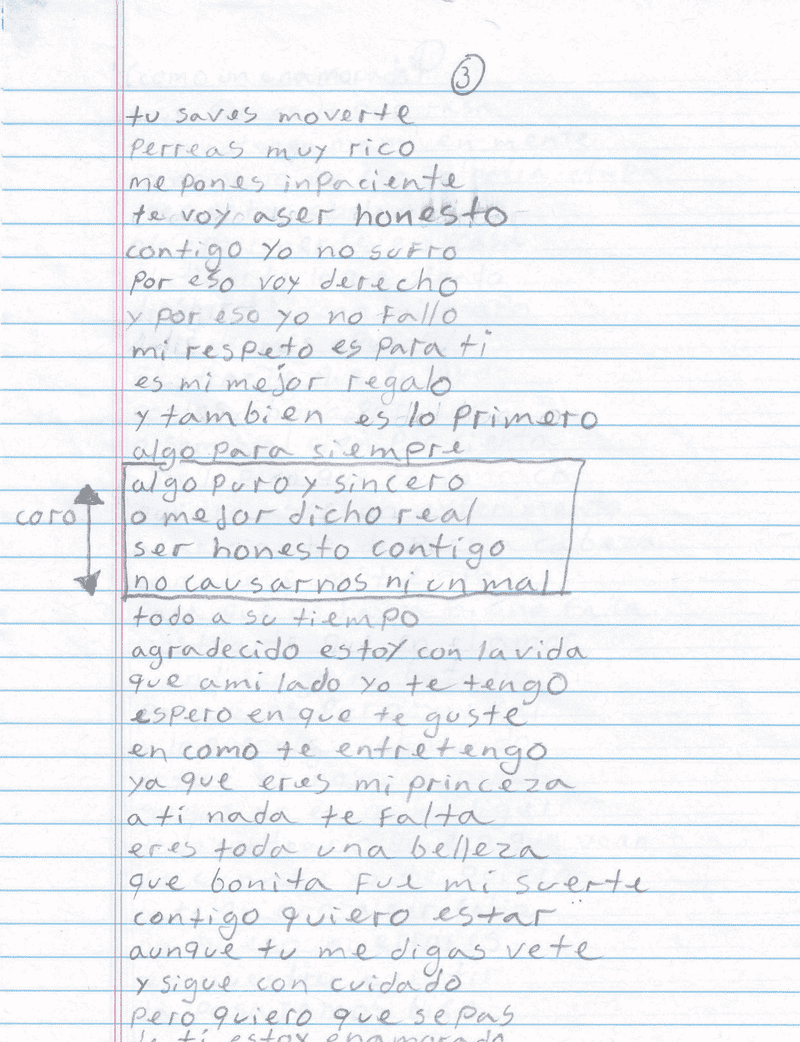 3
tu saves moverte
perreas muy rico
me pones inpaciente
te voy aser honesto
contigo yo no sufro
por eso voy derecho
y por eso yo no fallo
mi respeto es para ti
es mi mejor regalo
y tambien es lo primero
algo para siempre
algo puro y sincero
coro
o mejor dicho real
ser honesto contigo
no causarnos ni un mal
todo a su tiempo
agradecido estoy con la vida
que ami lado yo te tengo
espero en que te guste
en como te entretengo
ya que eres mi princeza
a ti nada te falta
eres toda una belleza
que bonita fue mi suerte
contigo quiero estar
aunque tu me digas vete
y sigue con cuidado
pero quiero que sepas
de ti estoy enamorado